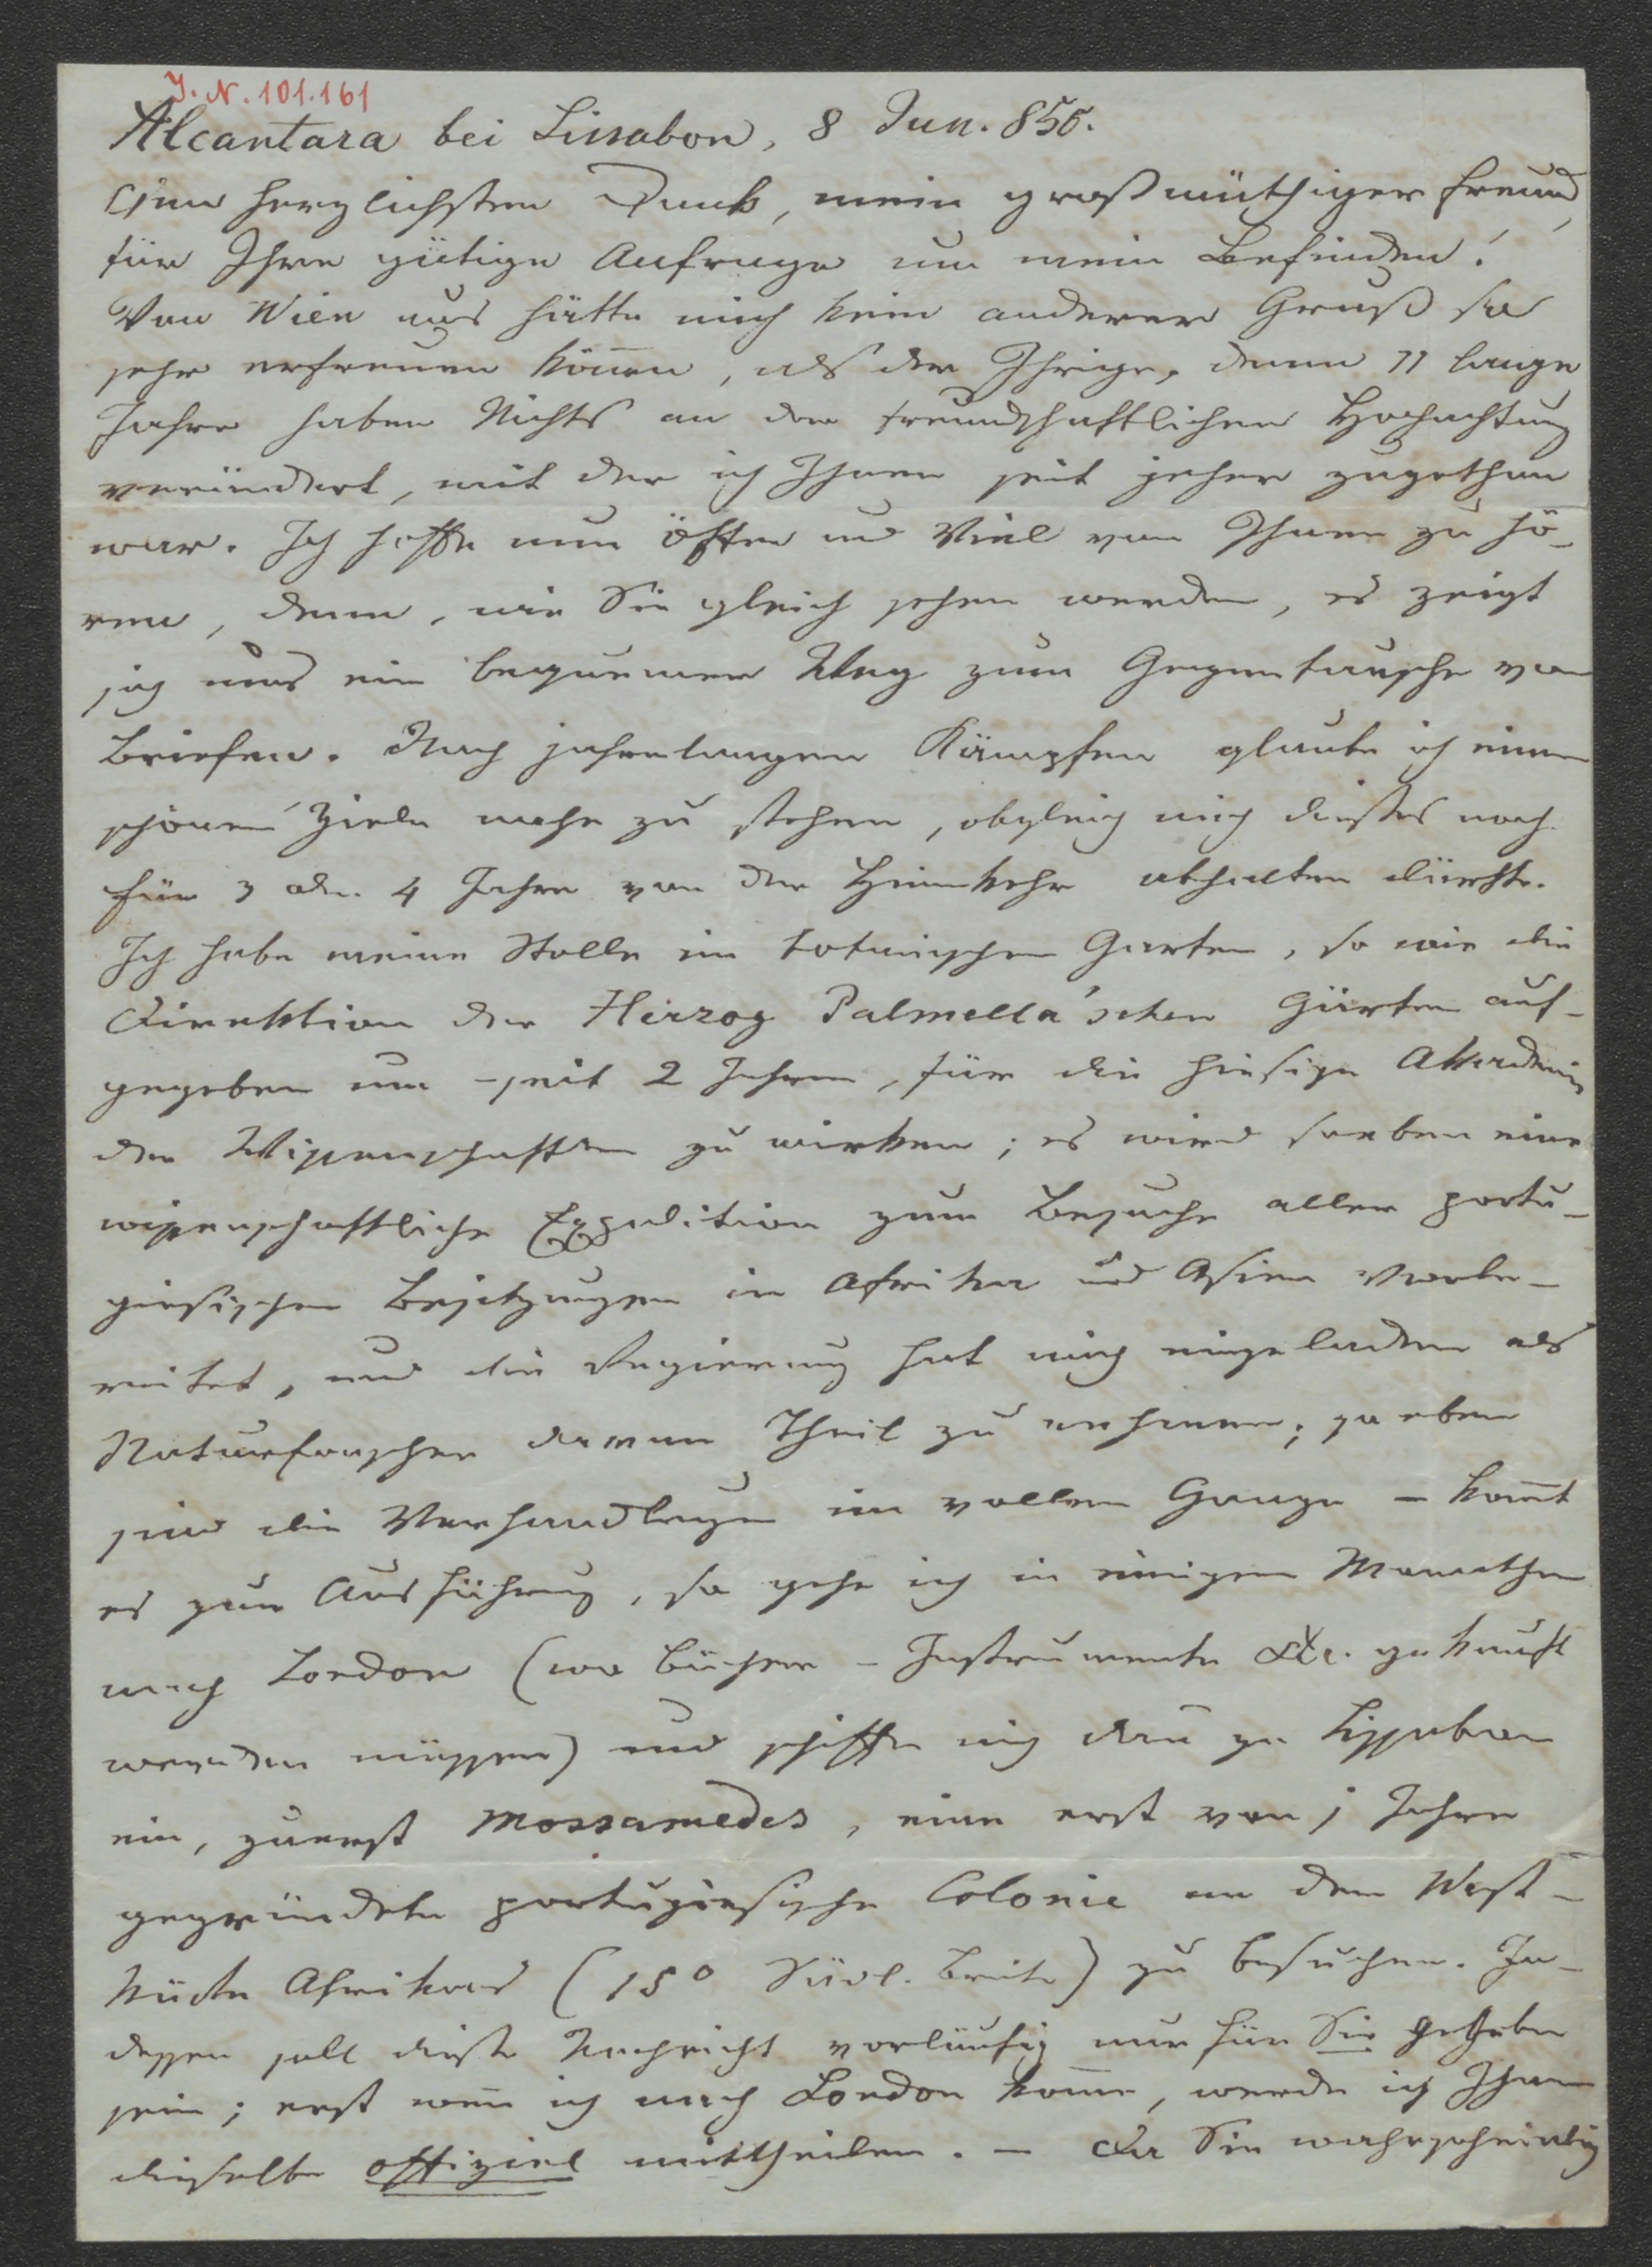 J. N. 101.161
Alcantara bei Lissabon, 8 Jun. 850.
Den herzlichsten Dank, mein großmüthiger Freund,
für Ihre gütige Anfrage um mein Befinden!
Von Wien aus hätte mich kein anderer Gruß so
sehr erfreuen köñen, als der Ihrige, denn 11 lange
Jahre haben Nichts an der freundschaftlichen Hochachtung
verändert, mit der ich Ihnen seit jeher zugethan
war. Ich hoffe nun öfter und Viel von Ihnen zu hö-
ren, denn, wie Sie gleich sehen werden, es zeigt
sich uns ein bequemer Weg zum Gegentausche von
Briefen. Nach jahrelangen Kämpfen glaube ich einem
schönen Ziele nahe zu stehen, obgleich mich dießes noch
für 3 oder 4 Jahre von der Heimkehr abhalten dürfte.
Ich habe meine Stelle im botanischen Garten, so wie die
Direktion der Herzog Palmella'schen Gärten auf-
gegeben um - seit 2 Jahren, für die hiesige Akademie
der Wissenschaften zu wirken; es wird soeben eine
wissenschaftliche Expedition zum Besuche aller portu-
giesischen Besitzungen in Afrika und Asien vorbe-
reitet, und die Regierung hat mich eingeladen als
Naturforscher daran Theil zu nehmen; so eben
sind die Verhandlungen im vollen Gange – kom̃t
es zur Ausführung, so gehe ich in einigen Monathen
nach London (wo Bücher - Instrumente &c. gekauft
werden müssen) und schiffe mich dañ zu Lissabon
ein, zuerst Mossamedes, eine erst vor 1 Jahre
gegründete portugiesische Colonie an der West-
küste Afrikas (15° Südl. Breite) zu besuchen. In-
dessen soll dieße Nachricht vorläufig nur für Sie gegeben
sein; erst weñ ich nach London kom̃e, werde ich Ihnen
dieselbe offiziel mittheilen. – Da Sie wahrscheinlich